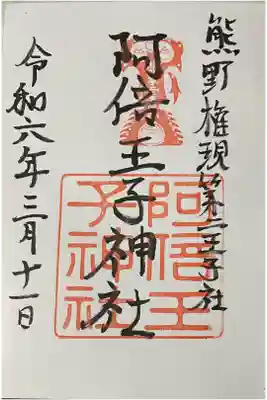 熊野権現第二王子社
阿倍王子神社
阿倍王
子神社
令和六年三月十一日